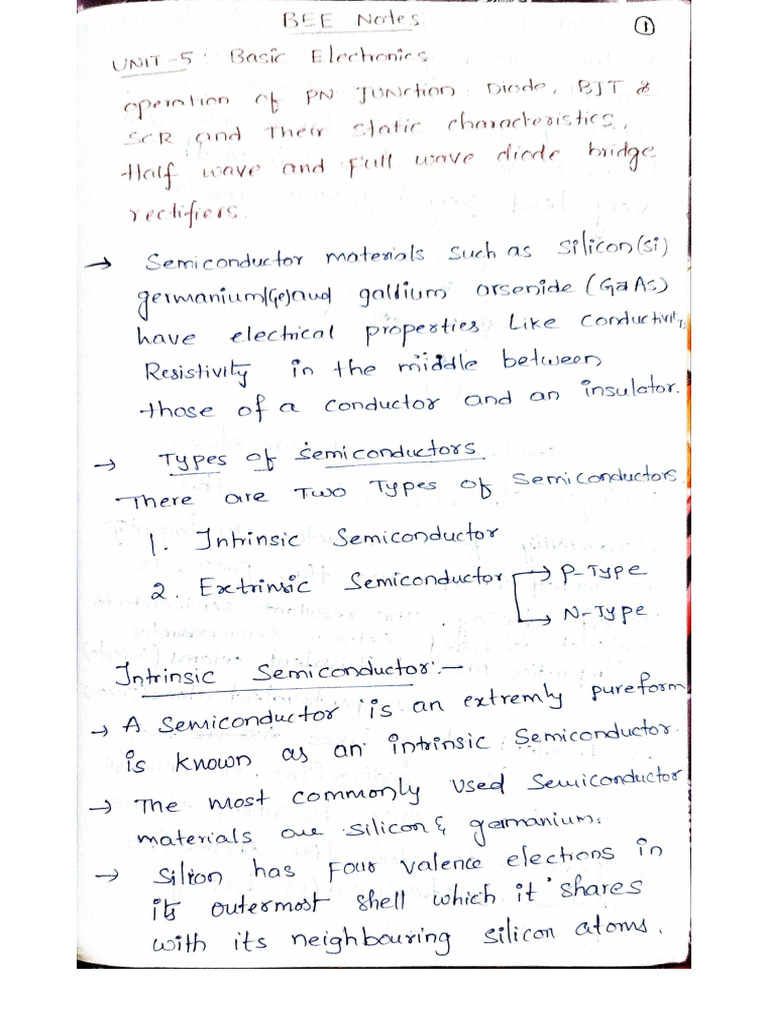 BEE Notes
1
UNIT-5: Basic Electronics
operation of PN JUNCTION Diode, BJT &
SCR and Their Static characteristics,
Half wave and Full wave diode bridge
rectifiers.
→ Semiconductor materials such as Silicon(si)
germanium(Ge)and gallium arsenide (GaAs)
have electrical properties Like conductivity,
Resistivity in the middle between
those of a conductor and an insulator.
→ Types of semiconductors
There are Two Types of Semiconductors.
1. Intrinsic Semiconductor
2. Extrinsic Semiconductor → P-Type
→ N-Type.
Intrinsic Semiconductor:-
→ A semiconductor is an extremly pureform
is known as an intrinsic Semiconductor.
→ The most commonly used Semiconductor
materials are silicon & germanium.
→ Silicon has Four valence elections in
its outermost shell which it shares
with its neighbouring silicon atoms.